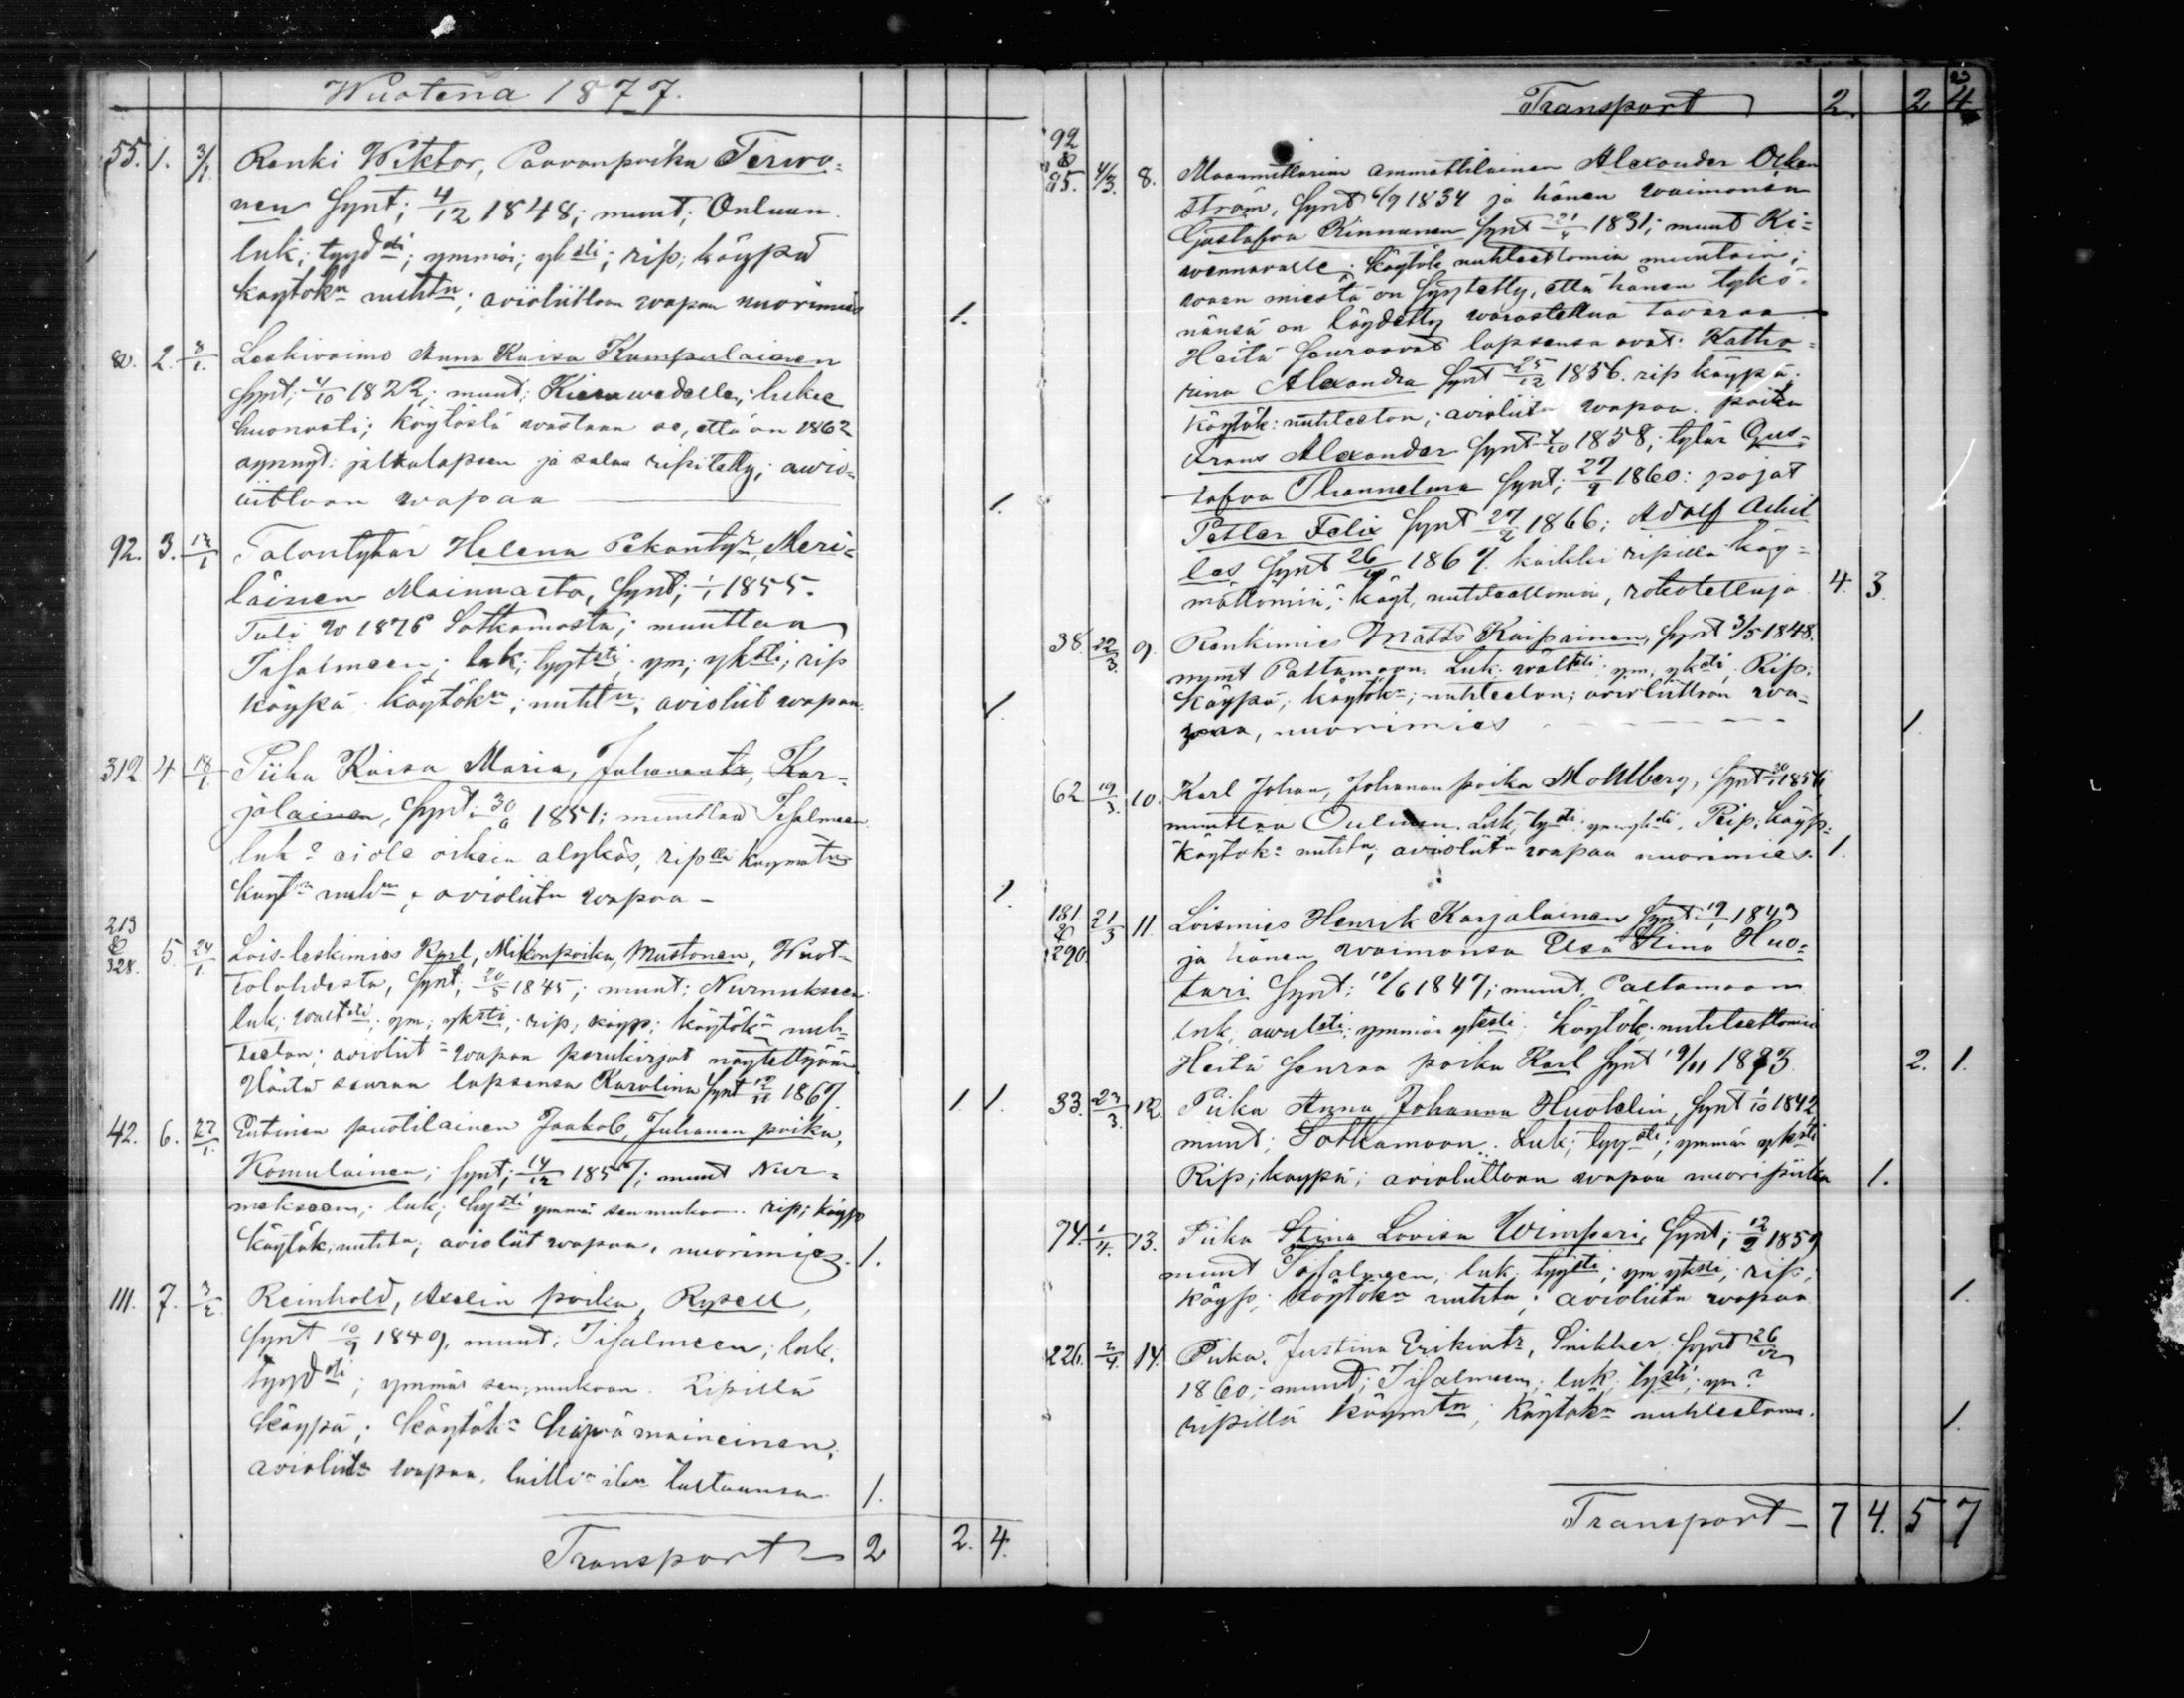 Wuotena 1877.
55. 1. 3/1. Renki Wiktor, Paavonpoika Terwo-
nen Synt; 4/12 1848; muut; Ouluun
luk; tyydsti; ymmär; yksti; rip; käypä
käytökn nuhtn; avioliittoon wapaa nuorimies 1.
80. 2. 8/1. Leskivaimo Anna Kaisa Kumpulainen
Synt; 4/10 1822; muut; Kiuruwedelle; lukee
huonosti; käytöstä wastaan se, että on 1862
jalkalapsen ja salaa ripitetty; awio-
liittoon wapaa 1.
92. 3. 12/1 Talontytär Helena Pekantyr Meri-
läinen Mainuasta, Synt; 1/1 1855.
Tuli w 1876 Sotkamosta; muuttaa
Iisalmeen; luk; tyytsti; ym; yksti; rip
käypä käytökn; nuhtn; avioliit wapaa. 1.
312 4 18/1 Piika Kaisa Maria, Juhanantr, Kar-
jalainen, Synt. 30/6 1851; muuttaa Iisalmeen
luk? ei ole oikein älykäs, riplla käymätön
käytn nuhn; avioliitn wapaa - 1.
213
&
328. 5. 24/1. Lois-leskimies Karl, Mikonpoika, Mustonen, Wuot-
tolahdesta, Synt; 20/5 1845; muut: Nurmekseen
luk; walt sti; ym; yksti; rip; käyp; käytökn nuh-
teeton; avioliitn wapaa perukirjat näytettyään
Häntä seuraa lapsensa Karolina Synt 12/11 1867. 1. 1.
42. 6. 27/1. Entinen puotilainen Jaakob, Juhanan poika,
Komulainen; Synt; 14/12 1857; muut Nur-
mekseen; luk; tysti ymmär sen mukaan. rip; käyp
käytök; nuhtn; avioliit wapaa, nuorimies. 1.
111. 7. 3/2. Reinhold, Axelin poika, Rysell,
Synt 10/9 1849, muut; Iisalmeen; luk.
tyydsti; ymmär sen; mukaan. Ripillä
käypä; käytökn häpiä maineinen,
avioliitn wapaa. 1.
Transport 2 2. 4.
23
Transport 2 2 4
92
&
85. 4/3. 8. Maanmittarin ammattilainen Alexander Oker
ström, Synt 6/9 1834 ja hänen waimonsa
Gustafva Rinnunen Synt 21/4 1831; muut Ki-
wennavalle; käytök nuhteettomia muutoin;
waan miestä on syytetty, että hänen tykö-
nänsä on löydetty warastettua tavaraa
Heitä seuraavat lapsensa ovat: Katha-
rina Alexandra Synt 25/12 1856. rip käypä;
käytök: nuhteeton; avioliitn wapaa. poika
Frans Alexander Synt 4/10 1858; tytär Gus-
tafva Synt; 27/9 1860: pojat
Petter Felix Synt 27/2 1866; Adolf Achil
les Synt 26/10 1867. kaikki ripillä käy-
mättömiä; käyt, nuhteettomia, rokotettuja. 4. 3.
38. 22/3. 9. Renkimies Matts Kaipainen, Synt 3/5 1848.
muut Paltamoon. Luk. wältsti ym; yksti, Rip;
käypä; käytökn; nuhteeton; avioliittoon wa-
paa, nuorimies 1.
62 19/3. 10. Karl Johan, Johanan poika Mohlberg, Synt 20/1 1856
muuttaa Ouluun. Luk, tysti; ymmyksti. Rip; käyp:
käytökn nuhtn; avioliitn wapaa nuorimies. 1.
181
&
290. 21/3 11. Loismies Henrik Karjalainen Synt 19/1 1843
ja hänen waimonsa Elsa Stina Huo-
tari Synt; 10/6 1847; muut, Paltamoon
luk, ymmär yksti, käytök. nuhteettomia
Heitä seuraa poika Karl Synt 19/11 1873. 2. 1.
33. 23/3. 12. Piika Anna Johanna Huotelin, Synt 1/10 1842
muut; Sotkamoon. Luk; tyysti; ymmär yksti
Rip; käypä; avioliittoon wapaa nuoripiika 1.
74. 1/4. 13. Piika Stina Lovisa Wimpari, Synt; 12/2 1859
muut Iisalmeen, luk; tyysti; ym yksti; rip;
käyp; käytökn nuhtn; avioliitn wapaa 1.
226. 2/4. 14. Piika. Justina Erikintr, Snikker, Synt 26/12
1860; muut; Iisalmeen; luk; tysti; ym?
ripillä käymtn; käytökn nuhteeton. 1.
Transport 7 4. 5 7